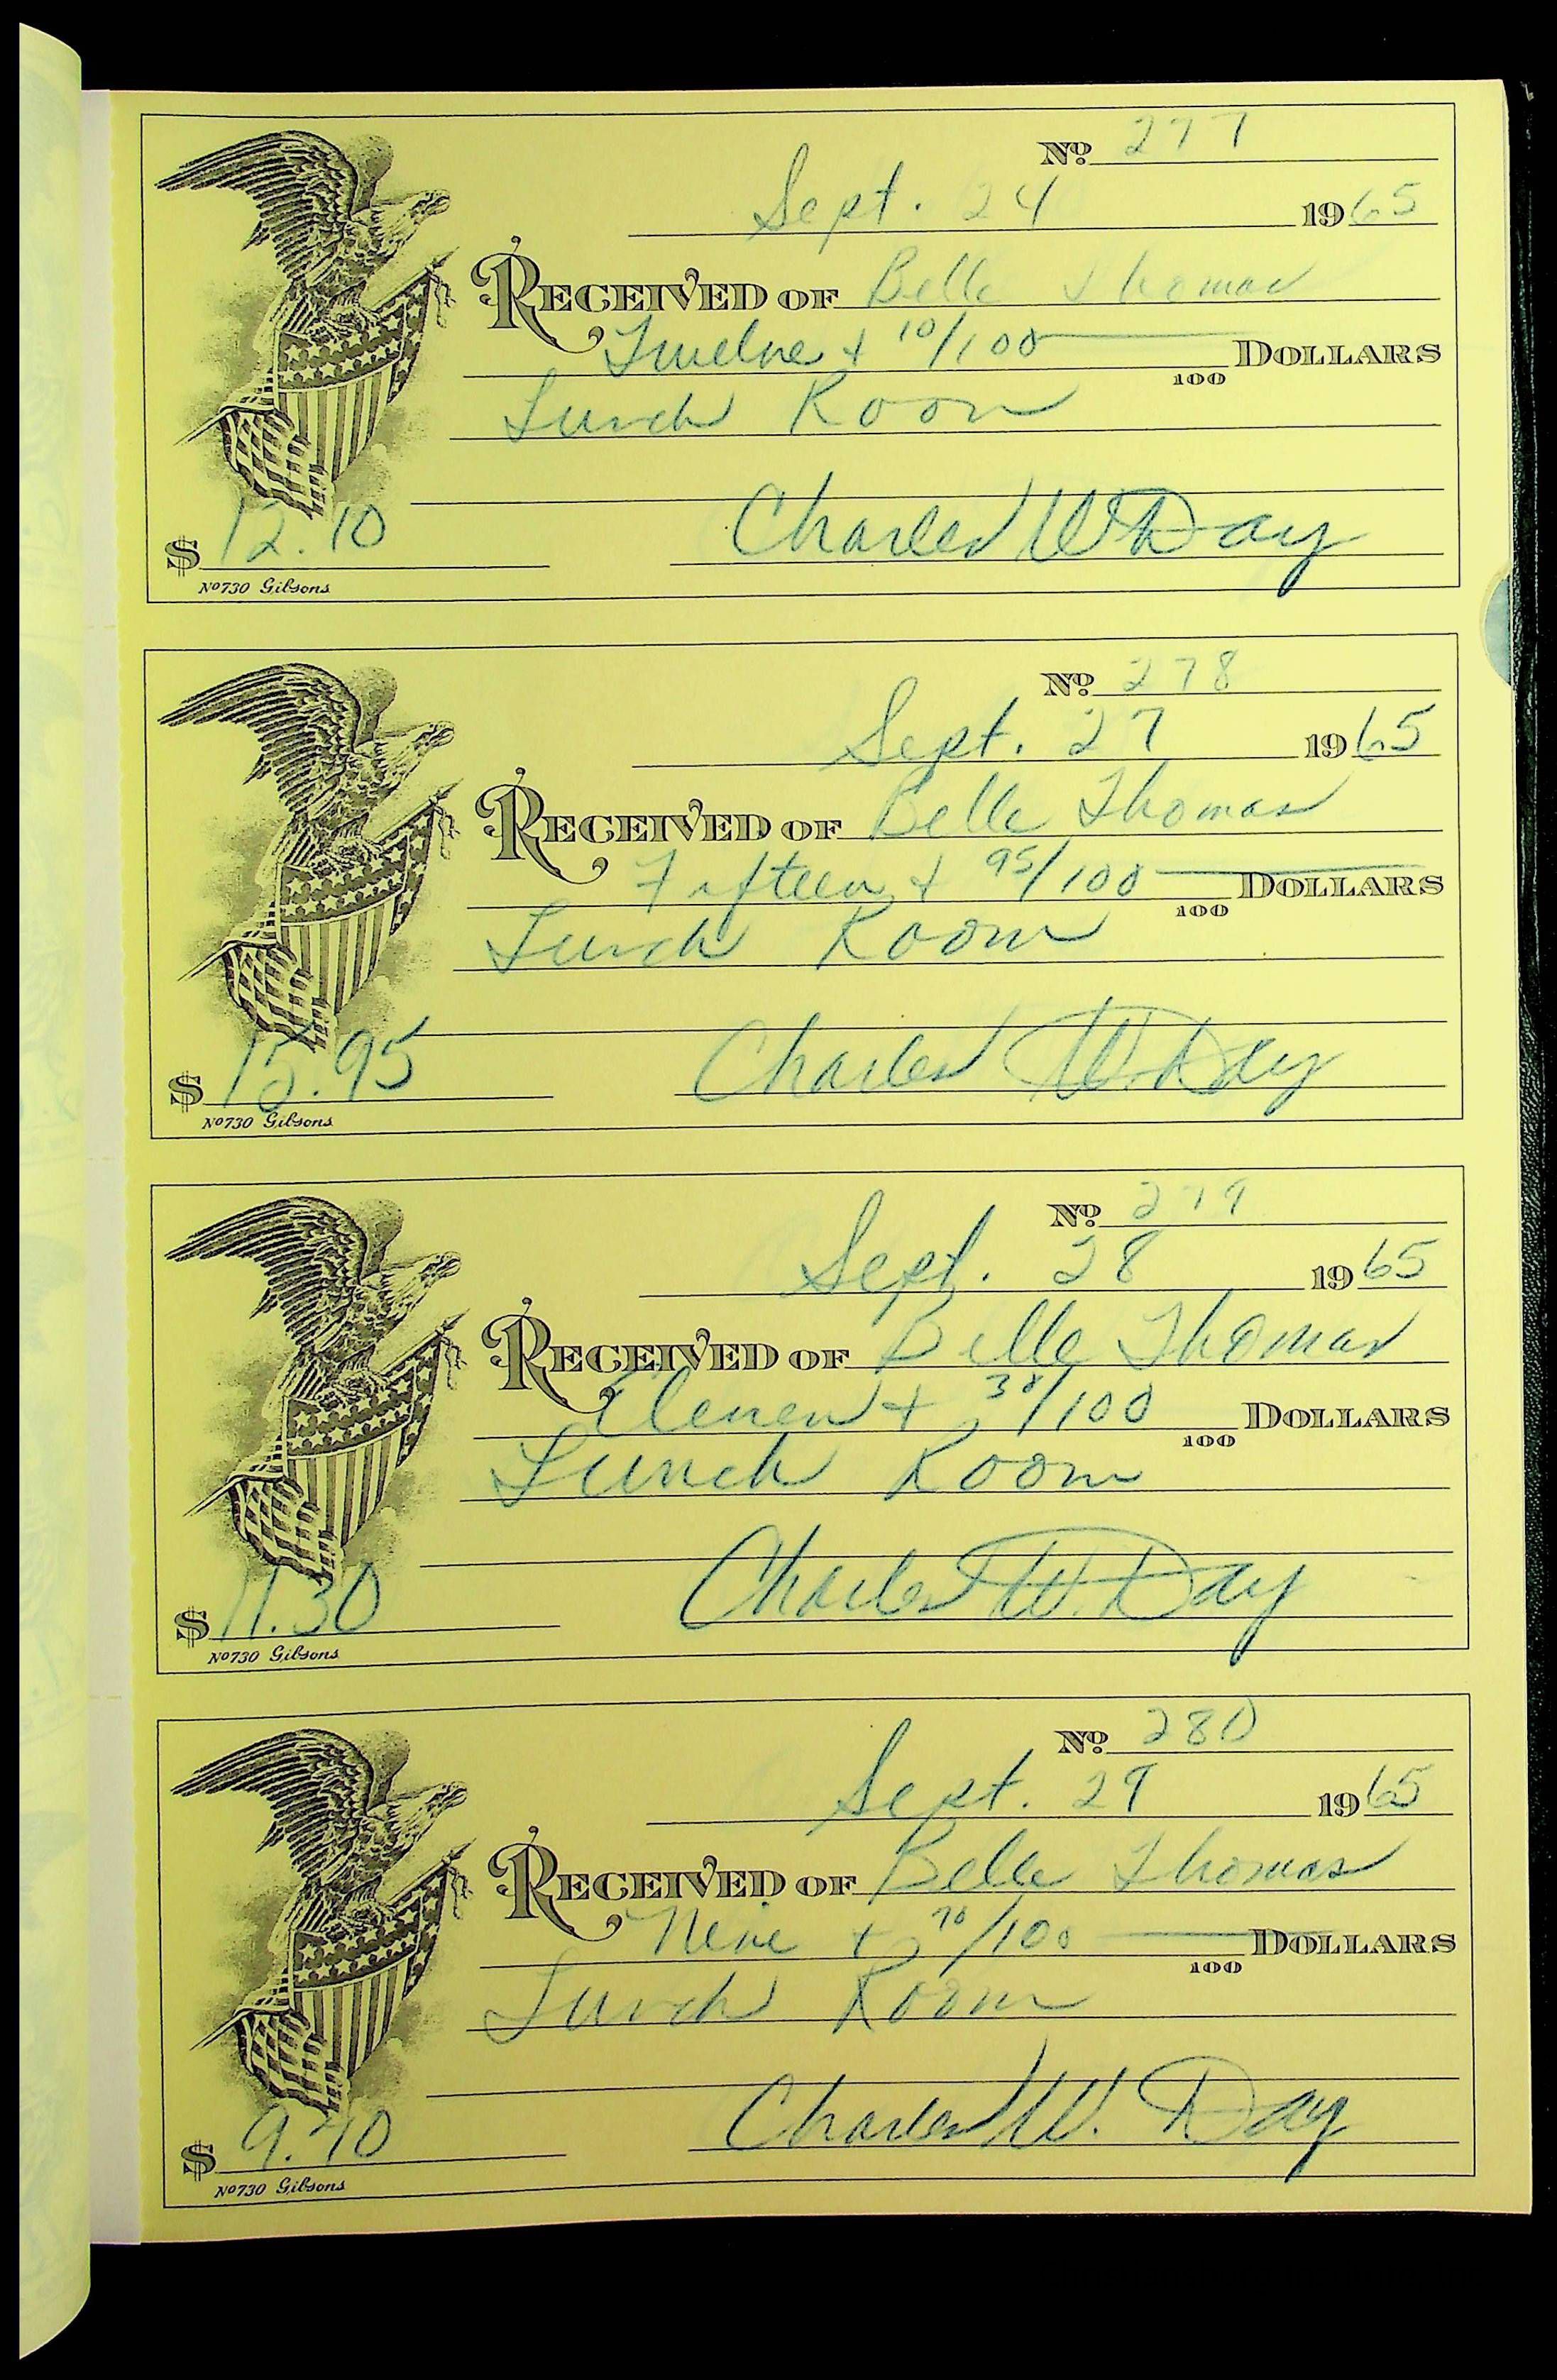 No. 277
Sept. 24 1965
RECEIVED OF Belle Thomas
Twelve + 10/100 100 DOLLARS
Lunch Room
Charles W Day
$ 12.10
No 730 Gibsons
No. 278
Sept. 27 1965
RECEIVED OF Belle Thomas
Fifteen + 95/100 100 DOLLARS
Lunch Room
Charles W. Day
$ 15.95
No 730 Gibsons
No. 279
Sept. 28 1965
RECEIVED OF Belle Thomas
Eleven + 30/100 100 DOLLARS
Lunch Room
Charles W. Day
$ 11.30
No 730 Gibsons
No. 280
Sept. 29 1965
RECEIVED OF Belle Thomas
Nine + /100 100 DOLLARS
Lunch Room
Charles W. Day
$
No 730 Gibsons